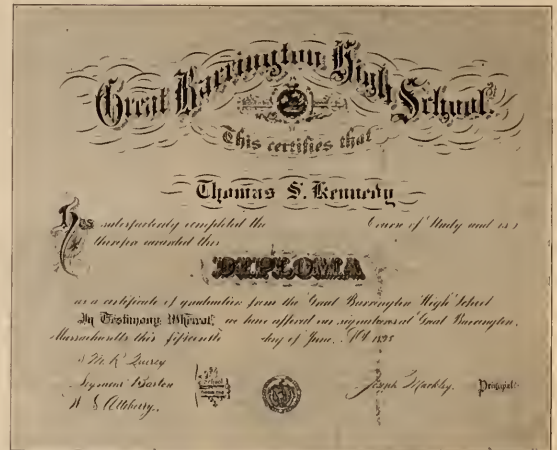 Great Barrington High School.
This certifies that
Thomas S. Kennedy
Has satisfactorily completed the Course of Study and is
therefor awarded this
DIPLOMA
as a certificate of graduation from the Great Barrington High School
In Testimony Whereof, we have affixed our signatures at Great Barrington,
Massachusetts this fifteenth day of June,
Joseph Principal